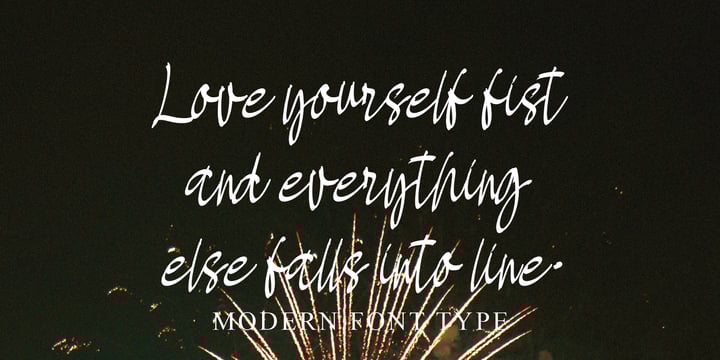 Love yourself fist
and everything
else falls into line.
MODERN FONT TYPE